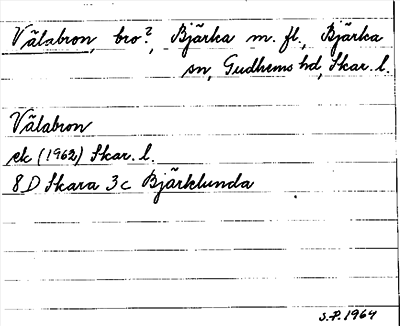 Välabron, bro?, Bjärka m. fl., Bjärka
sn, Gudhems hd, Skar. l.
Välabron
ek (1962) Skar. l.
8D Skara 3c Bjärklunda
S.P. 1964